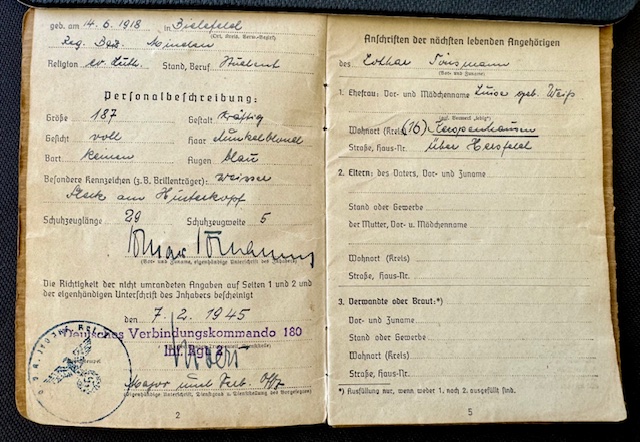 geb. am 14. 6. 1918, in Bielefeld
(Ort, Kreis, Verw.-Bezirk)
Reg. Bez. Minden
Religion ev. luth. Stand, Beruf Student
Personalbeschreibung:
Größe 187 Gestalt kräftig
Gesicht voll Haar dunkelblond
Bart keinen Augen blau
Besondere Kennzeichen (z.B. Brillenträger): weisser
Fleck am Hinterkopf
Schuhzeuglänge 29 Schuhzeugweite 5
(Vor- und Zuname, eigenhändige Unterschrift des Inhabers)
Die Richtigkeit der nicht umrandeten Angaben auf Seiten 1 und 2 und
der eigenhändigen Unterschrift des Inhabers bescheinigt
den 7. 2. 1945
Deutsches Verbindungskommando 180
Inf. Rgt
Major und Verb. Offz
(Eigenhändige Unterschrift, Dienstgrad u. Dienststellung des Vorgesetzten)
2
Anschriften der nächsten lebenden Angehörigen
des Lothar
(Vor- und Zuname)
1. Ehefrau: Vor- und Mädchenname Luise geb. Weiß
(ggf. Vermerk „ledig“)
Wohnort (Kreis) (16) Kerspenhausen
Straße, Haus-Nr. über Hersfeld
2. Eltern: des Vaters, Vor- und Zuname
Stand oder Gewerbe
der Mutter, Vor- u. Mädchenname
Wohnort (Kreis)
Straße, Haus-Nr.
3. Verwandte oder Braut:*)
Vor- und Zuname
Stand oder Gewerbe
Wohnort (Kreis)
Straße, Haus-Nr.
*) Ausfüllung nur, wenn weder 1. noch 2. ausgefüllt sind.
5